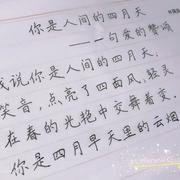 你是人间的四月天
——一句爱的赞颂
我说你是人间的四月天,
笑音,点亮了四面风,轻灵
在春的光艳中交舞着变.
你是四月早天里的云烟